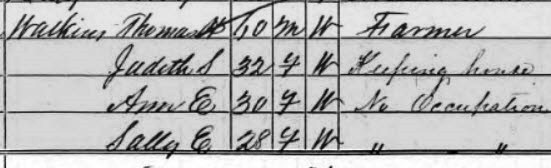 Watkins Thomas 60 M W Farmer
Judith S 32 F W Keeping house
Ann E 30 F W No Occupation
Sally E 28 F W " "